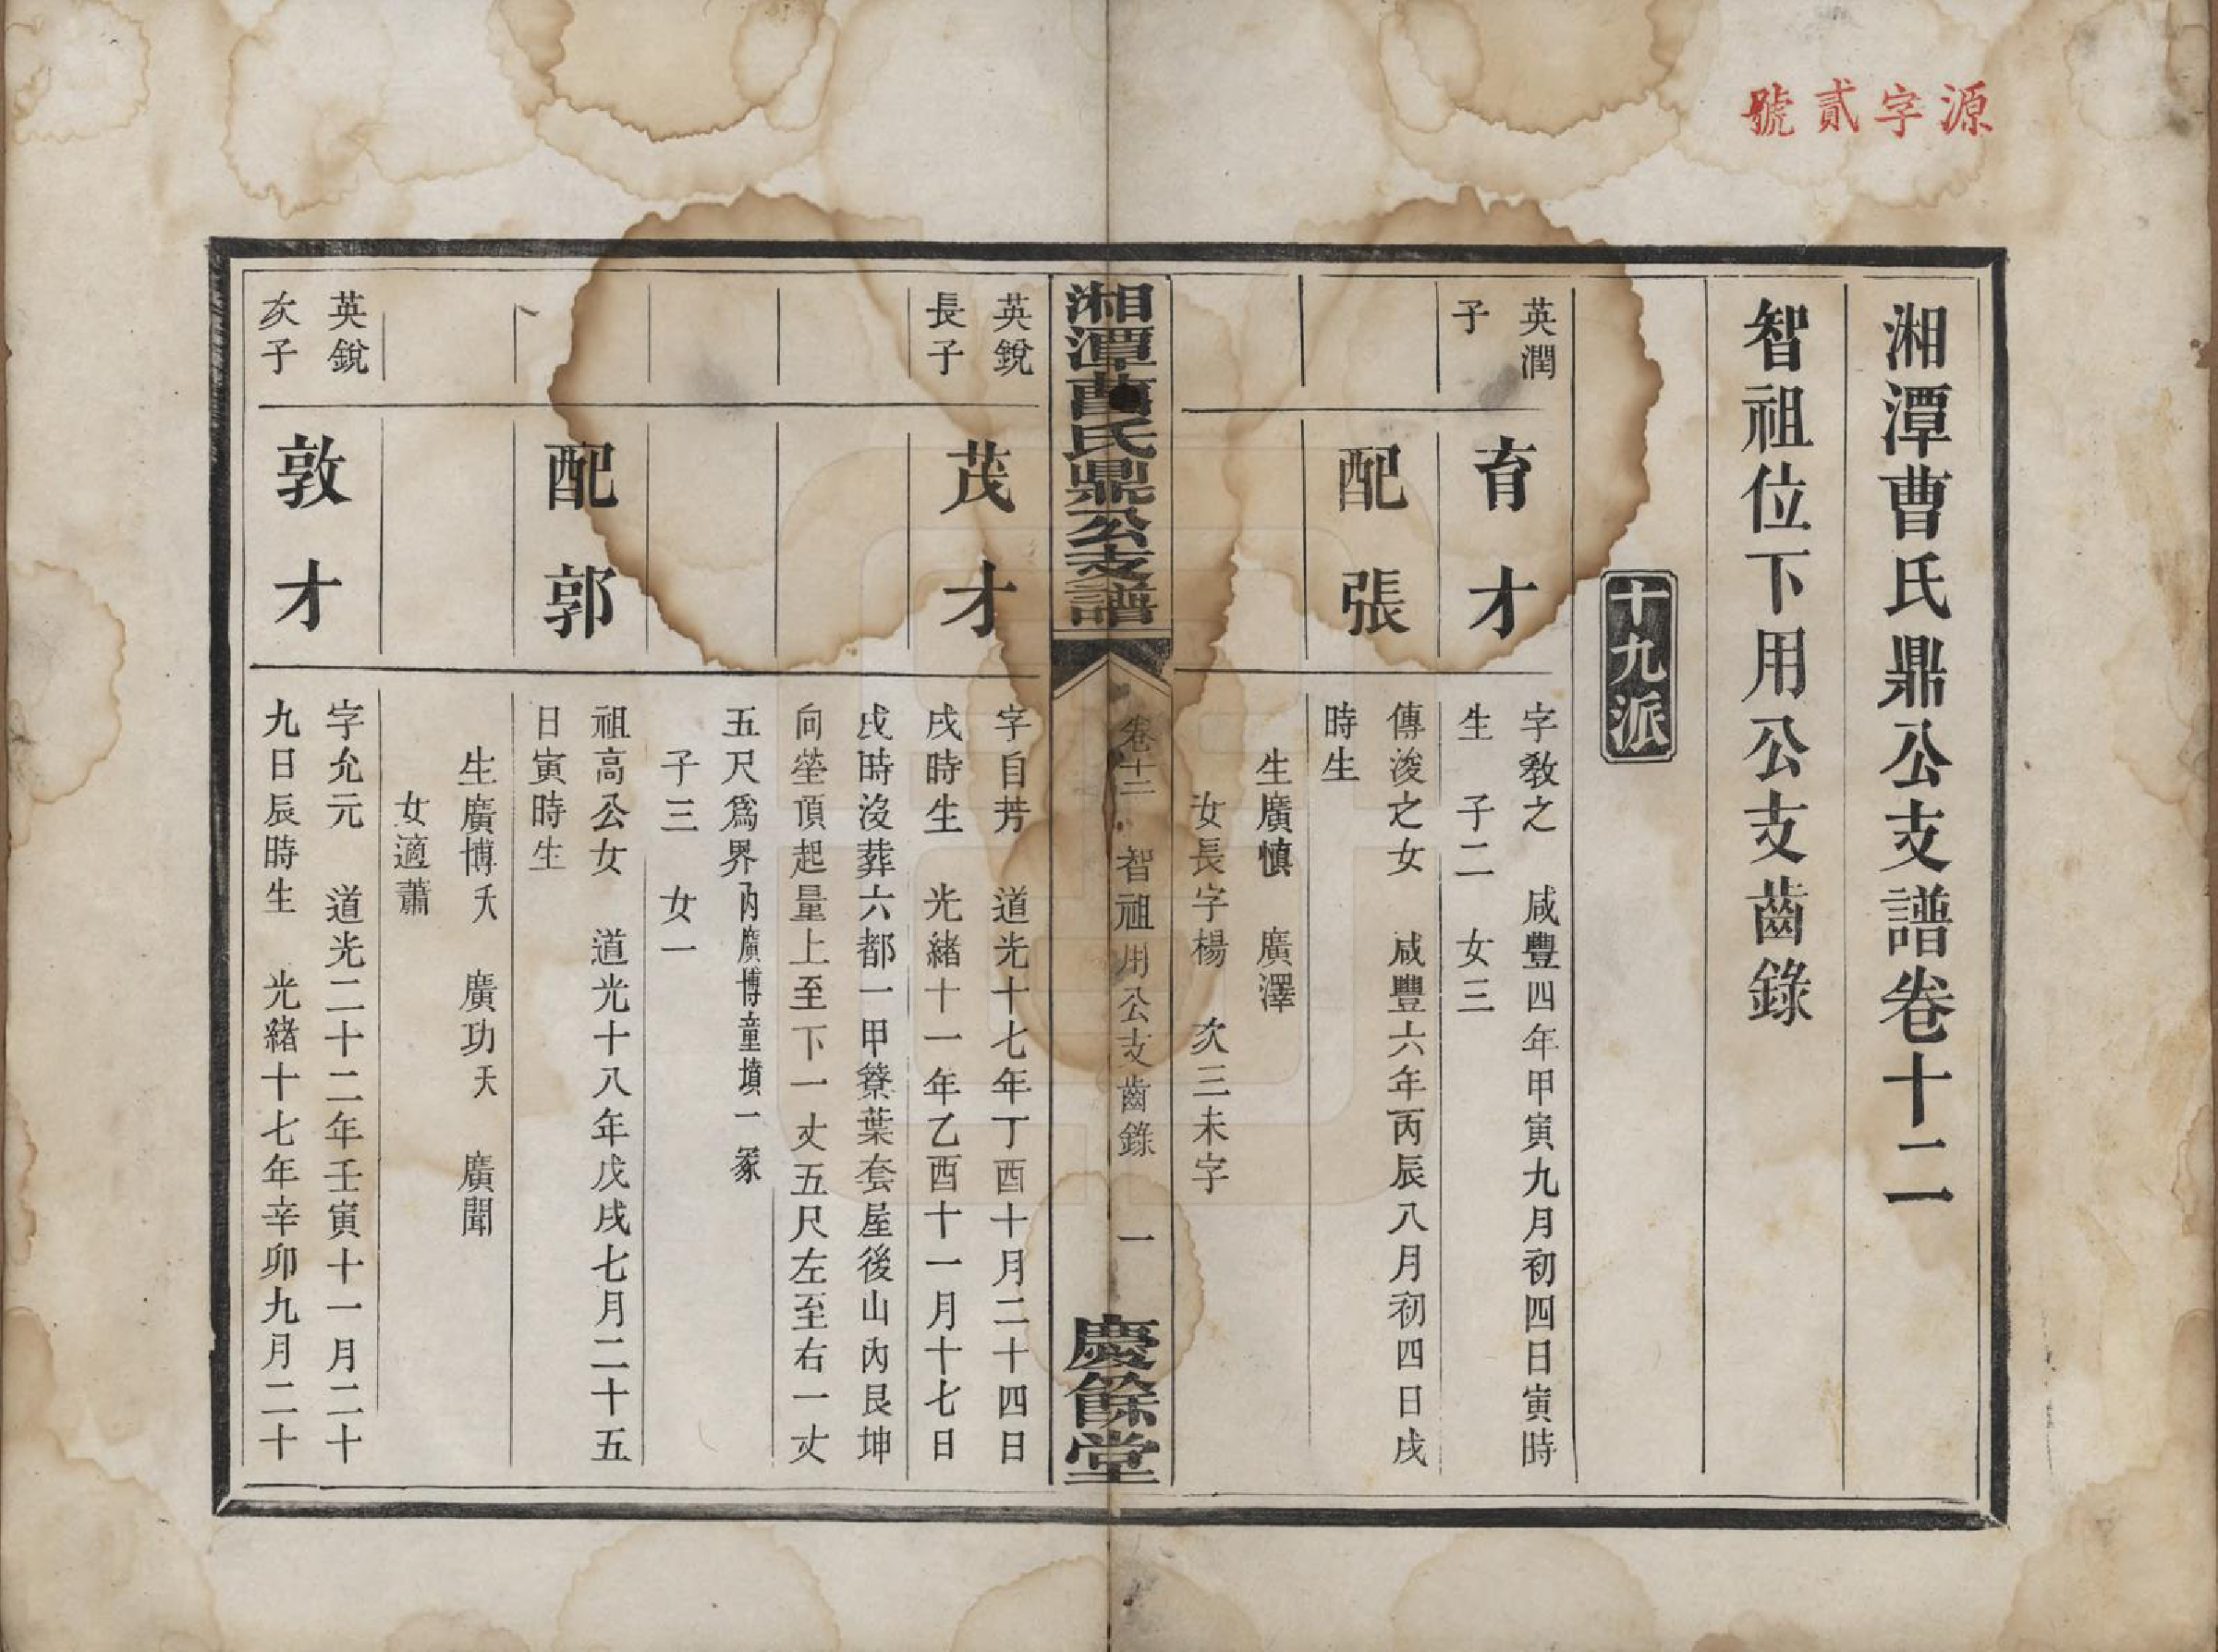 源字貳號
湘潭曹氏鼎公支譜卷十二
智祖位下用公支齒錄
十九派
英潤
子
育才
字敎之　咸豐四年甲寅九月初四日寅時
生　子二　女三
配張
傳浚之女　咸豐六年丙辰八月初四日戌
時生
生廣慎　廣澤
女長字楊　次三未字
湘潭曹氏鼎公支譜
卷十二　智祖用公支齒錄　一
慶餘堂
英銳
長子
茂才
字自芳　道光十七年丁酉十月二十四日
戌時生　光緒十一年乙酉十一月十七日
戌時沒葬六都一甲簝葉套屋後山內艮坤
向塋頂起量上至下一丈五尺左至右一丈
五尺爲界內廣博童墳一冢
子三　女一
配郭
祖高公女　道光十八年戊戌七月二十五
日寅時生
生廣博夭　廣功夭　廣聞
女適蕭
英銳
次子
敦才
字允元　道光二十二年壬寅十一月二十
九日辰時生　光緒十七年辛卯九月二十